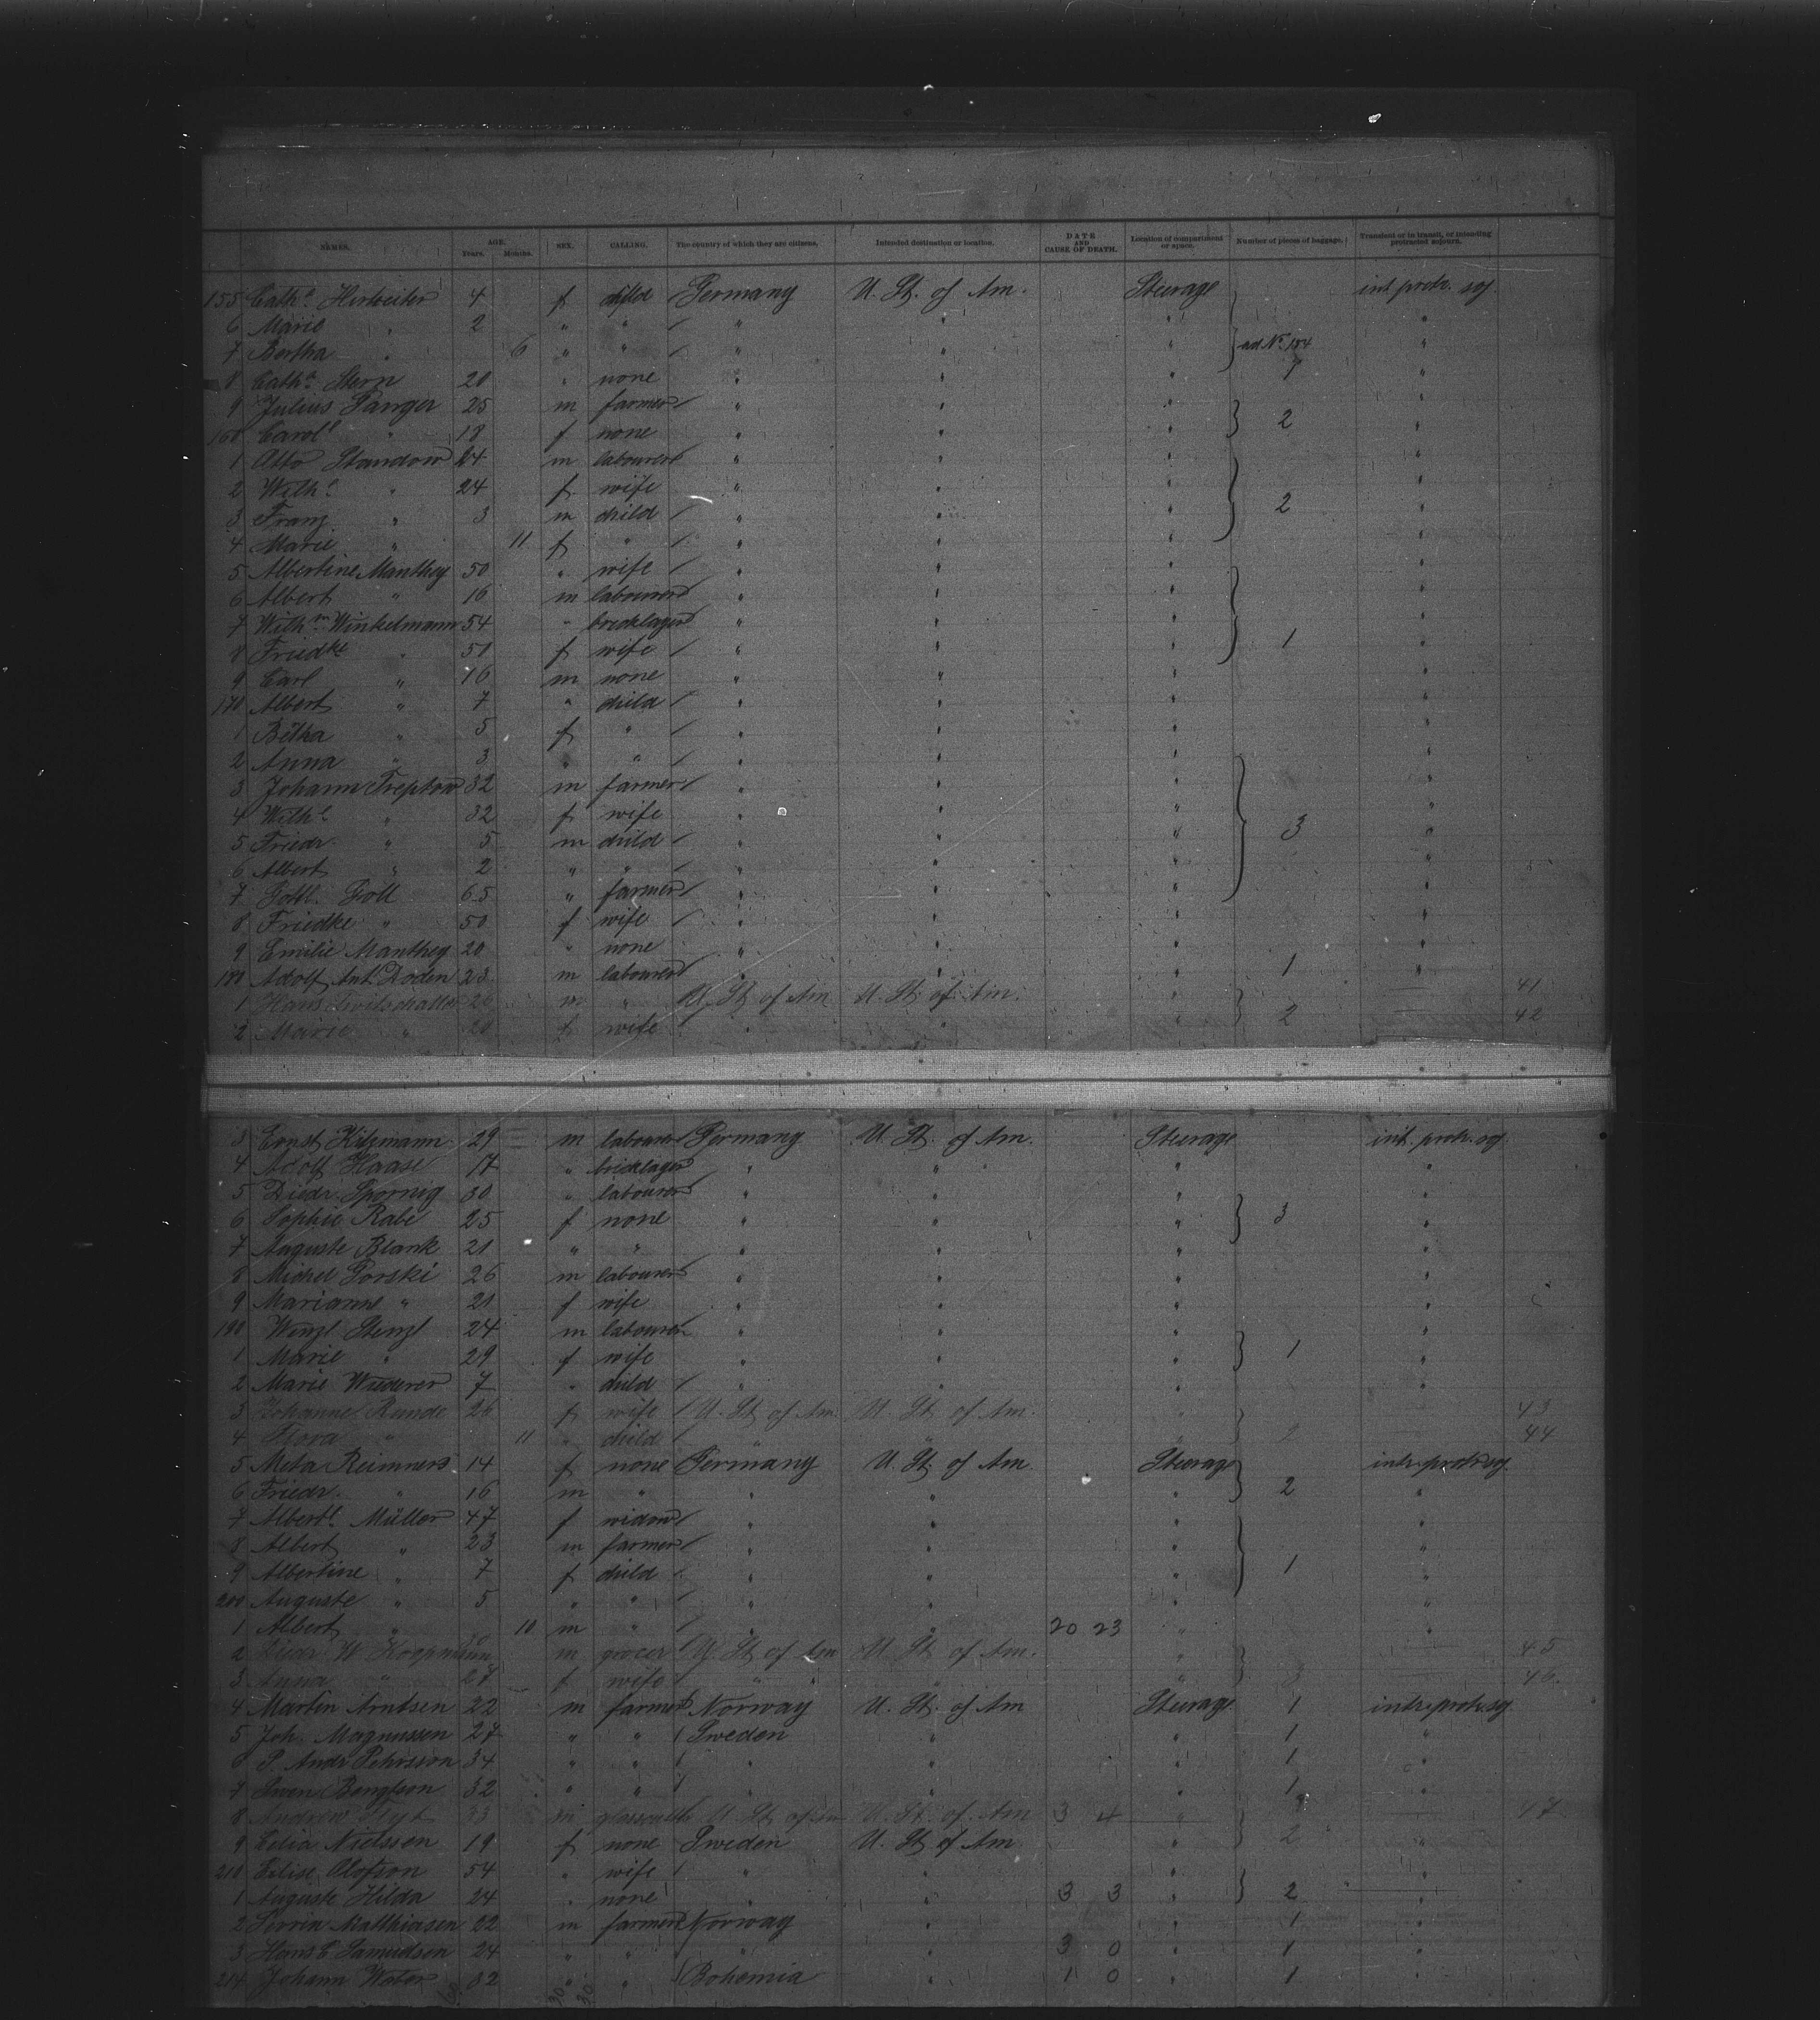 NAMES. AGE. Years. Months. SEX. CALLING. The country of which they are citizens. Intended destination or location. DATE AND CAUSE OF DEATH. Location of compartment or space. Number of pieces of baggage. Transient or in transit, or intending protracted sojourn.
155 Cathe Hirtreiter 4 f child Germany U. St. of Am. Steerage int. protr. soj.
6 Marie " 2 " " " " " "
7 Bertha " 6 " " " " " ad No. 154 "
8 Cathe Stern 20 " none " " " 1 "
9 Julius Panger 25 m farmer " " " 2 "
160 Carole " 18 f none " " " "
1 Otto Standow 24 m labourer " " " "
2 Wilhe " 24 f wife " " " "
3 Franz " 3 m child " " " 2 "
4 Marie " 11 f " " " " "
5 Albertine Manthey 50 " wife " " " "
6 Albert " 16 m labourer " " " "
7 Wilhm Winkelmann 54 " bricklayer " " " "
8 Friedke " 51 f wife " " " 1 "
9 Carl " 16 m none " " " "
170 Albert " 7 " child " " " "
1 Betha " 5 f " " " " "
2 Anna " 3 " " " " " "
3 Johann Treptow 32 m farmer " " " "
4 Wilhe " 32 f wife " " " "
5 Friedr. " 5 m child " " " 3 "
6 Albert " 2 " " " " " "
7 Gottl. Goll 65 " farmer " " " "
8 Friedke " 50 f wife " " " "
9 Emilie Manthey 20 " none " " " "
180 Adolf Ant. Doden 23 m labourer " " " 1 "
1 Hans 26 m " U. St. of Am U. St. of Am. " 41
2 Marie " 20 f wife " " " 2 42
3 Ernst Kitzmann 29 m labourer Germany U. St. of Am. Steerage int. protr. soj.
4 Adolf Haase 17 " bricklayer " " " "
5 Diedr. Spornig 30 " labourer " " " "
6 Sophie Rabe 25 f none " " " 3 "
7 Auguste Blank 21 " " " " " "
8 Michel Gorski 26 m labourer " " " "
9 Marianne " 21 f wife " " " "
190 Wenzl Stenzl 24 m labourer " " " "
1 Marie " 29 f wife " " " 1 "
2 Marie Wiederer 7 " child " " " "
3 Johanne Runde 26 f wife U. St. of Am U. St. of Am. " 43
4 Flora " 11 " child " " " 2 44
5 Meta Reimners 14 f none Germany U. St. of Am. Steerage intr. protr. soj.
6 Friedr. " 16 m " " " " 2 "
7 Alberte Müller 47 f widow " " " "
8 Albert " 23 m farmer " " " "
9 Albertine " 7 f child " " " 1 "
200 Auguste " 5 " " " " " "
1 Albert " 10 m " " " 20 23 " "
2 Diedr. W. Koopmann m grocer U. St. of Am U. St. of Am. " 45
3 Anna " 27 f wife " " " 46
4 Martin Arntsen 22 m farmer Norway U. St. of Am Steerage 1 intr. protr. soj.
5 Joh. Magnussen 27 " " Sweden " " 1 "
6 P. Andr. Pehrsson 34 " " " " " 1 "
7 Sven Bengtson 32 " " " " " 1 "
8 Andrew 33 m U. St. of Am U. St. of Am 3 4 " 47
9 Celia Nielssen 19 f none Sweden U. St. of Am. " 2 "
210 Elise Olofson 54 " wife " " " "
1 Auguste Hilda 24 " none " " 3 3 " 2 "
2 Mathiasen 22 m farmer Norway " " 1 "
3 Hans C. Samuelsen 24 " " " " 3 0 " 1 "
214 Johann 32 " " Bohemia " 1 0 " 1 "